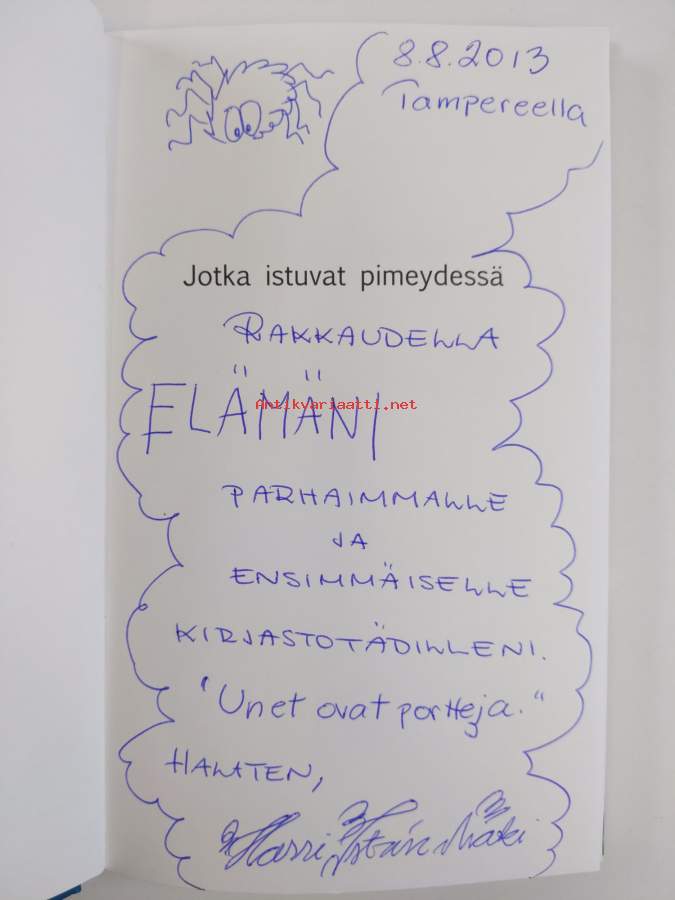 8.8.2013
Tampereella
Jotka istuvat pimeydessä
RAKKAUDELLA
ELÄMÄNI
Antikvariaatti.net
PARHAIMMALLE
JA
ENSIMMÄISELLE
KIRJASTOTÄDILLENI.
"Unet ovat portteja."
HALATEN,
Harri István Mäki